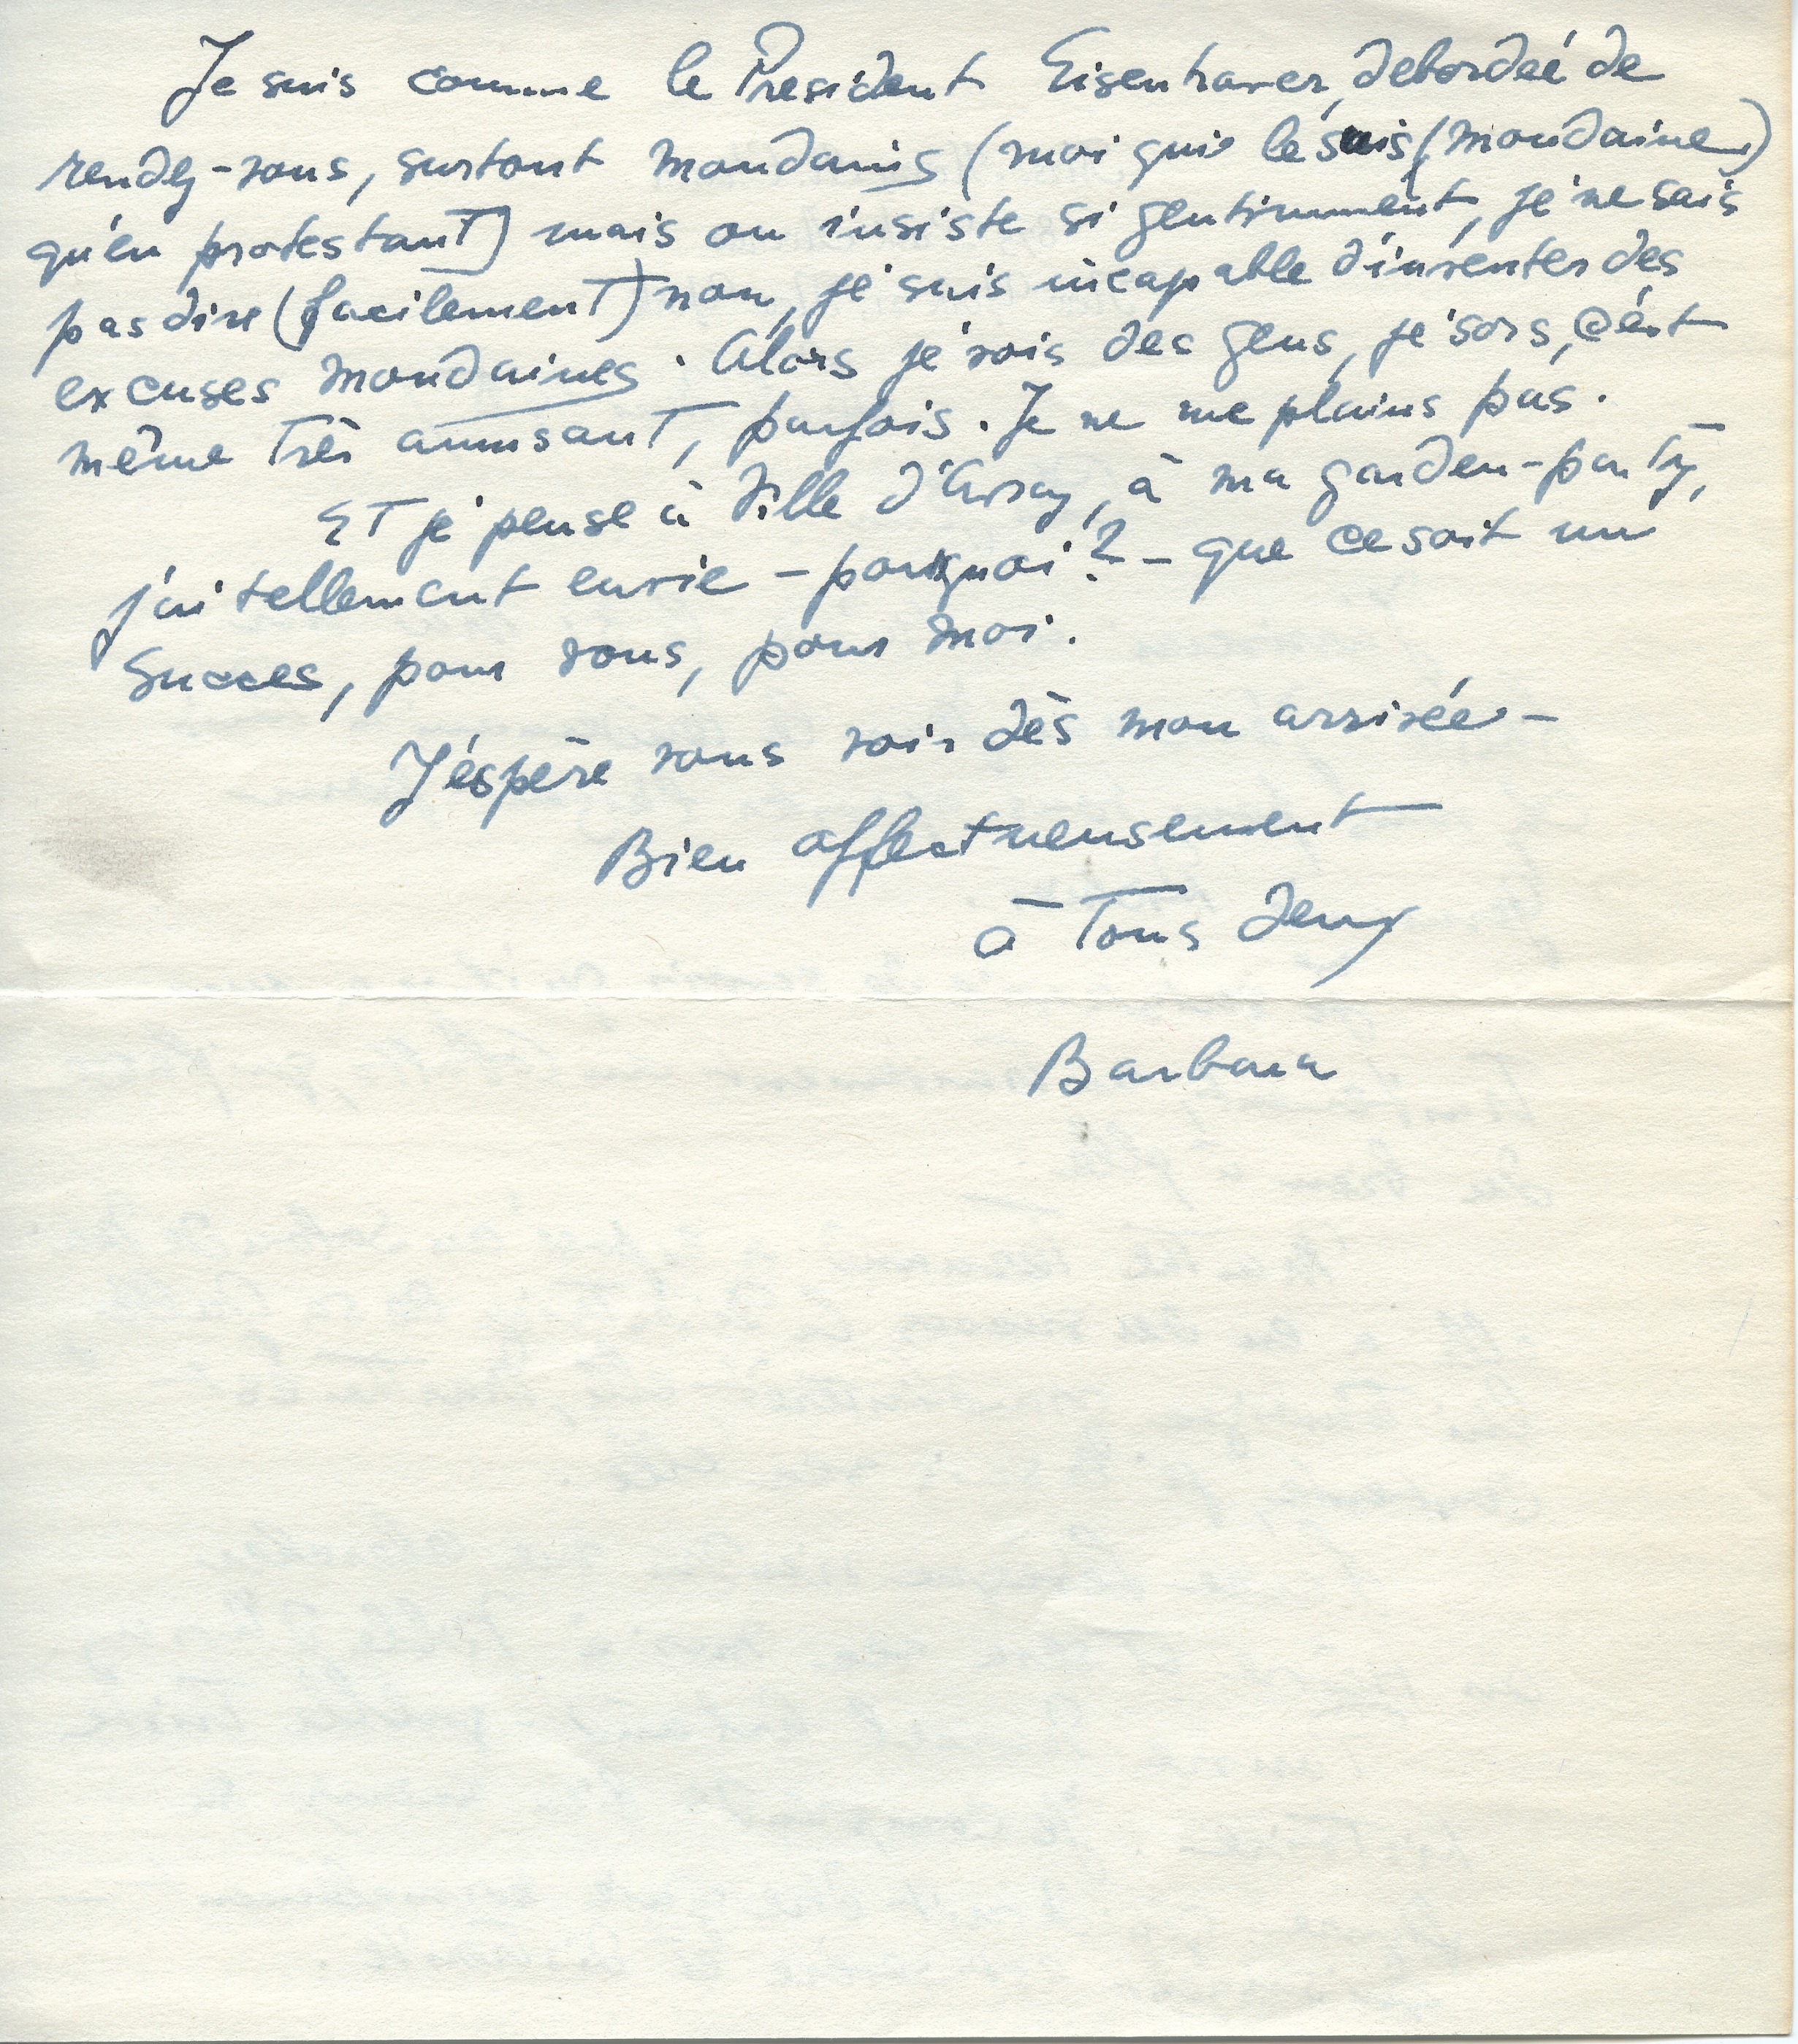 Je suis comme le President Eisenhower, debordeé de
rendez-vous, surtout mondains (moi qui le suis (mondaine)
qu'en protestant) mais on insiste si gentimment, je ne sais
pas dire (facilement) non, je suis incapable d'inventer des
excuses mondaines. Alors je vois des gens, je sors, c'ést
même très amusant, parfois. Je ne me plains pas.
Et je pense à Ville d'Avray, à ma garden-party,
j'ai tellement envie - pourquoi? - que ce soit un
Succes, pour vous, pour moi.
J'éspère vous voir dès mon arrivée -
Bien affectueusement
à Tous deux
Barbara